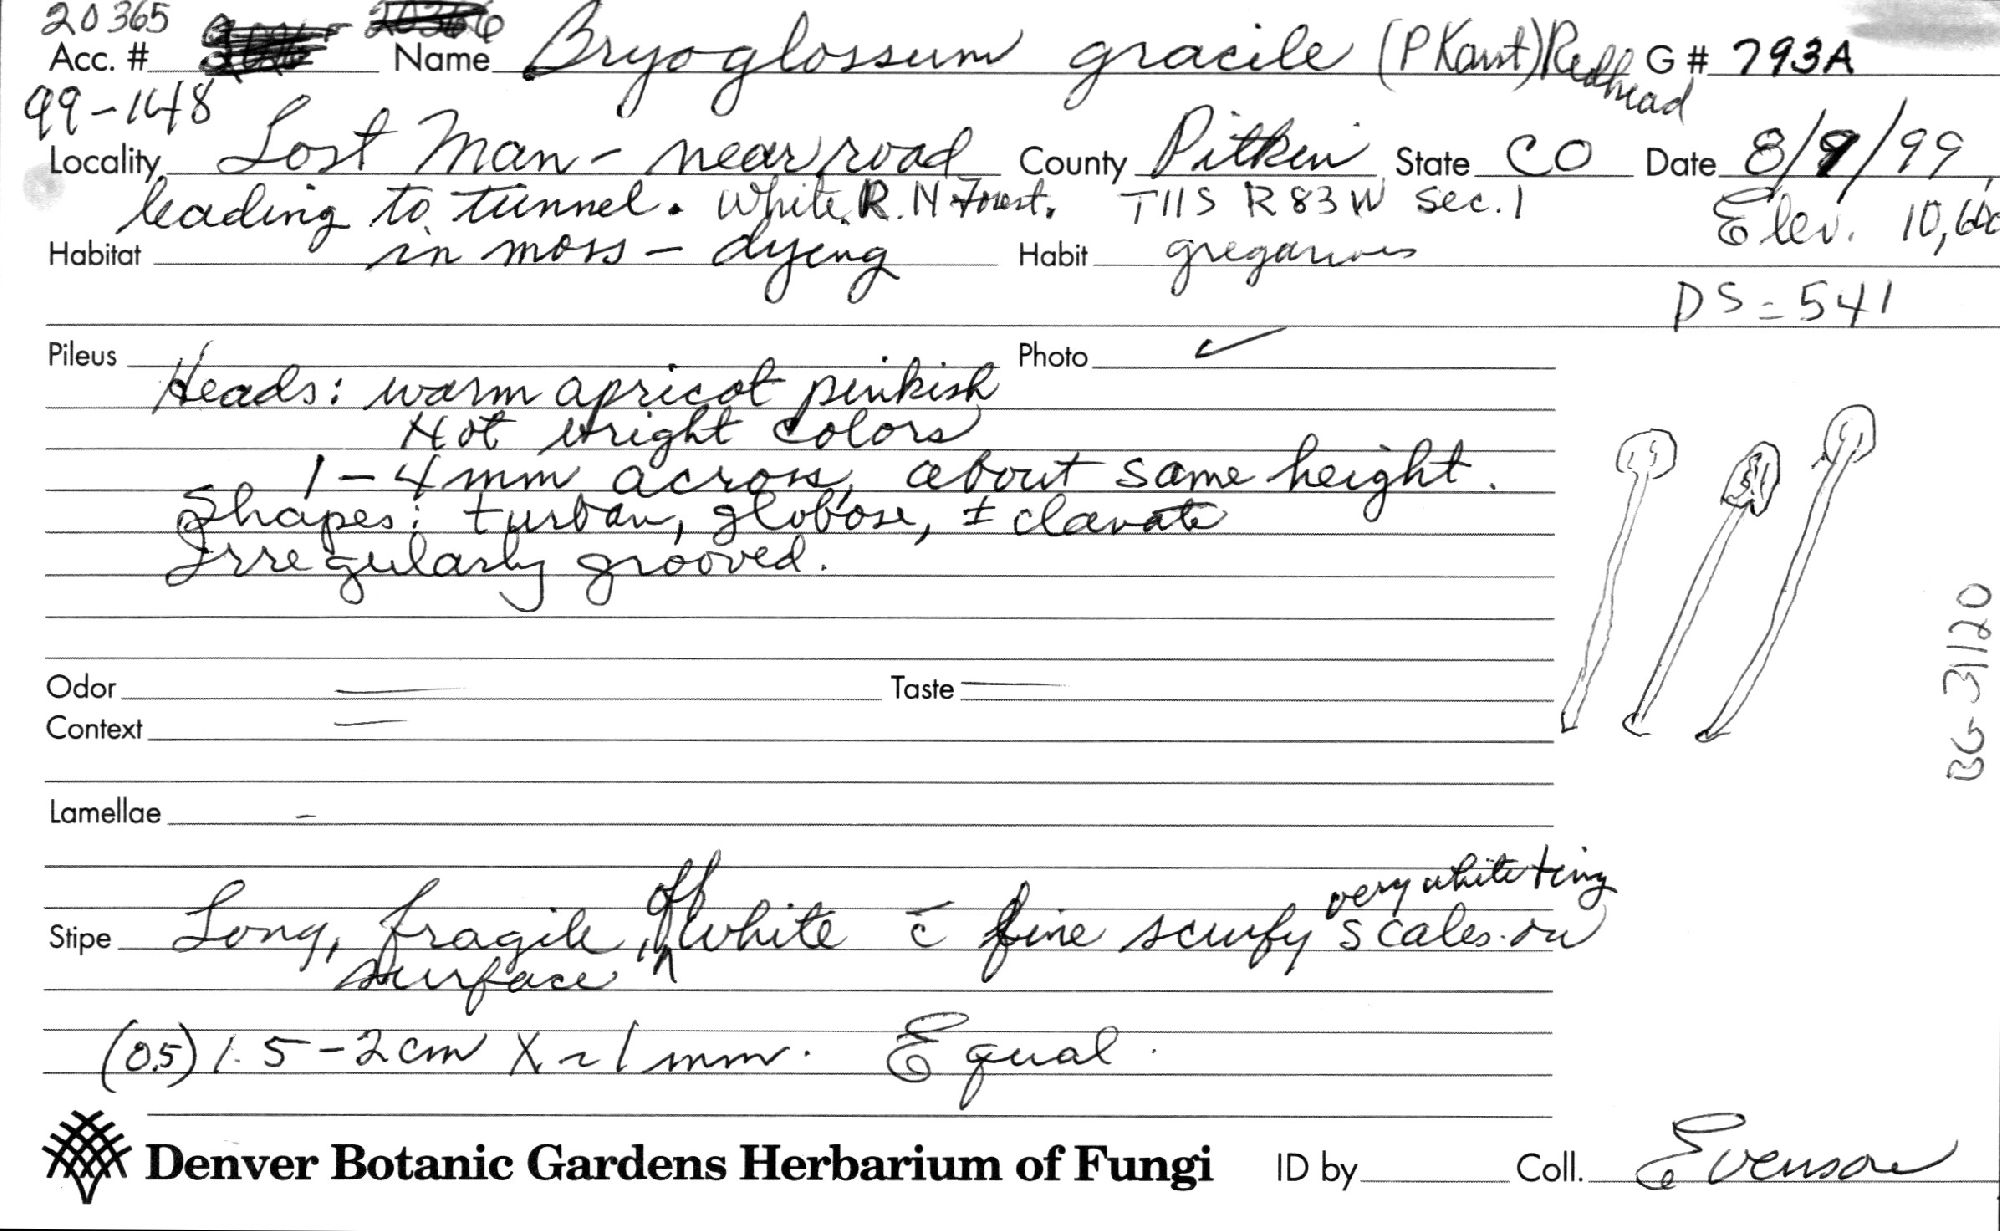 20365
Acc. # Name Bryoglossum gracile (P Karst) Redhead G # 793A
99-148
Locality Lost Man - near road County Pitkin State CO Date 8/9/99
leading to tunnel. White R. N Forest. T11S R83W Sec. 1 Elev. 10,600
Habitat in moss - dying Habit gregarious
DS = 541
Pileus Photo ✓
Heads: warm apricot pinkish
Not bright colors
1-4 mm across, about same height.
Shapes: turban, globose, ± clavate
Irregularly grooved.
BG-31120
Odor — Taste —
Context —
Lamellae -
Stipe Long, fragile, off white c̄ fine scurfy very white tiny scales on
surface
(0.5) 1.5-2 cm X ~ 1 mm. Equal.
Denver Botanic Gardens Herbarium of Fungi ID by Coll. Evenson